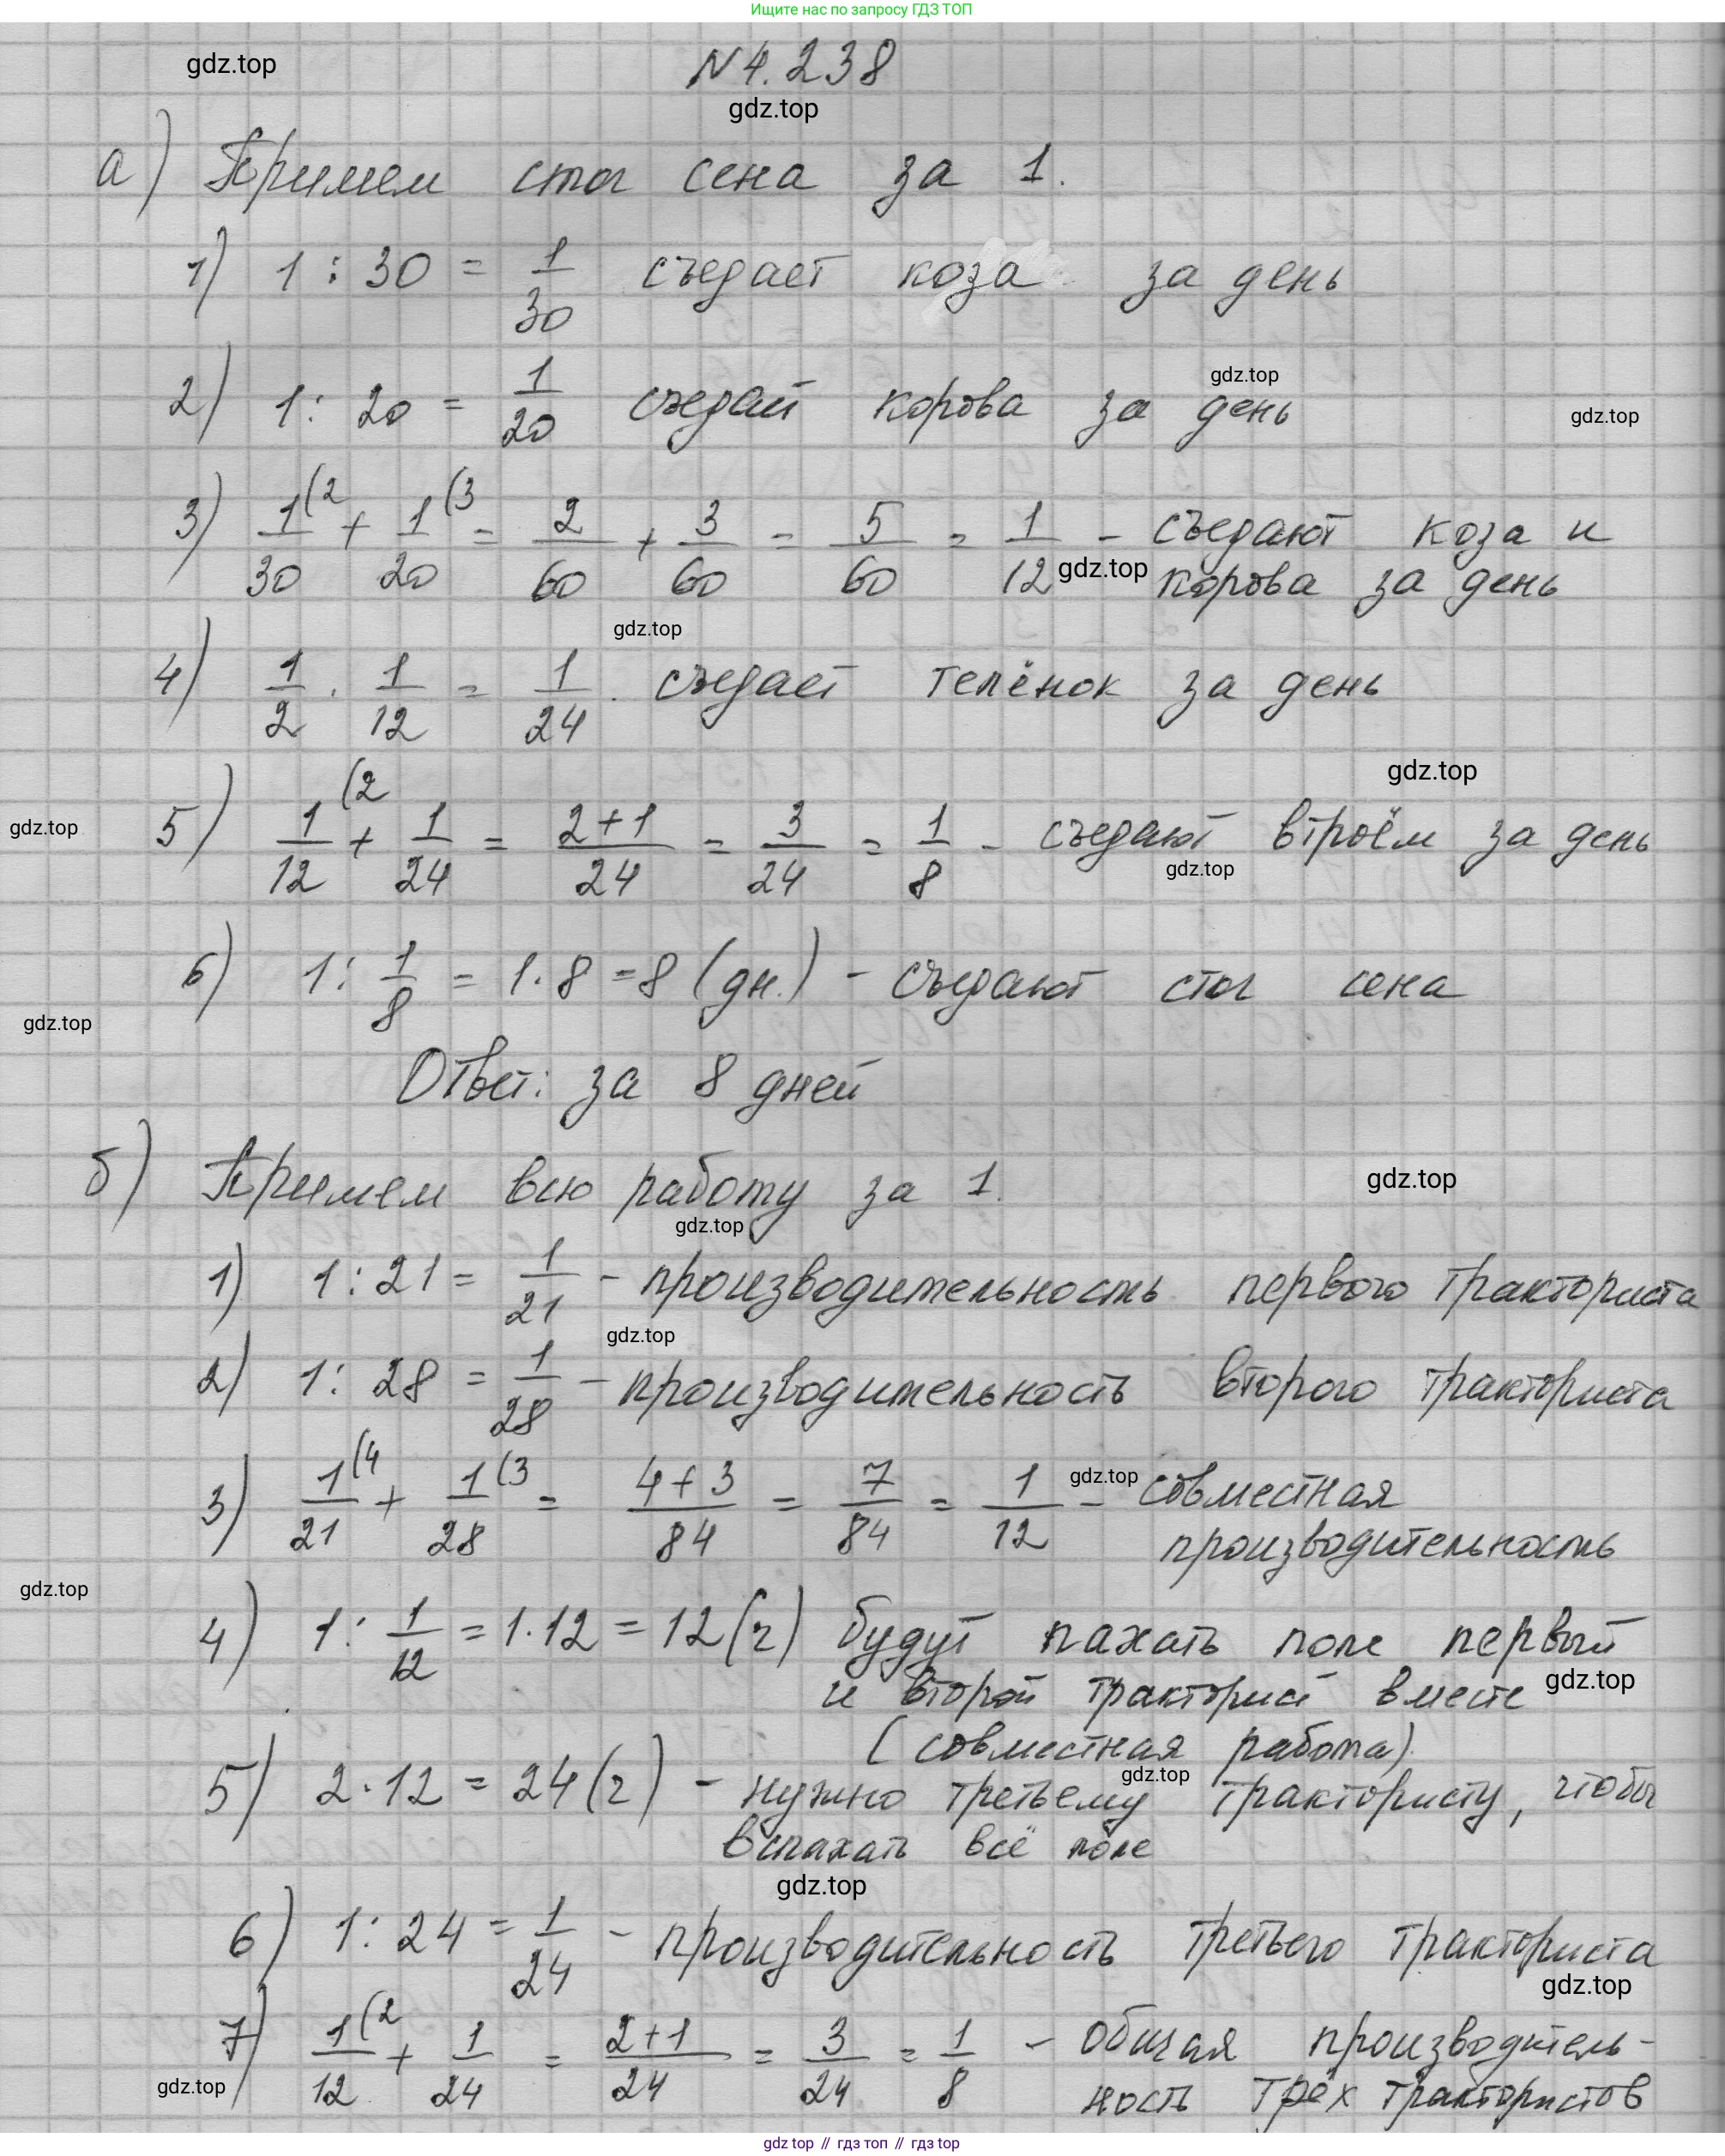 Ищите нас по запросу ГДЗ ТОП
gdz.top
N 4.238
gdz.top
а) Примем стог сена за 1.
1) 1 : 30 = 1/30 съедает коза за день
gdz.top
2) 1 : 20 = 1/20 съедает корова за день
gdz.top
3) 1/30 (2 + 1/20 (3 = 2/60 + 3/60 = 5/60 = 1/12 - съедают коза и
gdz.top корова за день
gdz.top
4) 1/2 · 1/12 = 1/24. съедает телёнок за день
gdz.top
gdz.top
5) 1/12 (2 + 1/24 = 2+1/24 = 3/24 = 1/8 - съедают втроём за день
gdz.top
6) 1 : 1/8 = 1·8 = 8 (дн.) - съедают стог сена
gdz.top
Ответ: за 8 дней
б) Примем всю работу за 1.
gdz.top
gdz.top
1) 1 : 21 = 1/21 - производительность первого тракториста
gdz.top
2) 1 : 28 = 1/28 - производительность второго тракториста
3) 1/21 (4 + 1/28 (3 = 4+3/84 = 7/84 = 1/12 - совместная
gdz.top
производительность
gdz.top
4) 1 : 1/12 = 1·12 = 12 (ч) будут пахать поле первый
и второй тракторист вместе
gdz.top
(совместная работа)
gdz.top
5) 2·12 = 24 (ч) - нужно третьему трактористу, чтобы
вспахать всё поле
gdz.top
6) 1 : 24 = 1/24 - производительность третьего тракториста
gdz.top
7) 1/12 (2 + 1/24 = 2+1/24 = 3/24 = 1/8 - общая производитель-
gdz.top
ность трёх трактористов
gdz top // гдз топ // гдз top